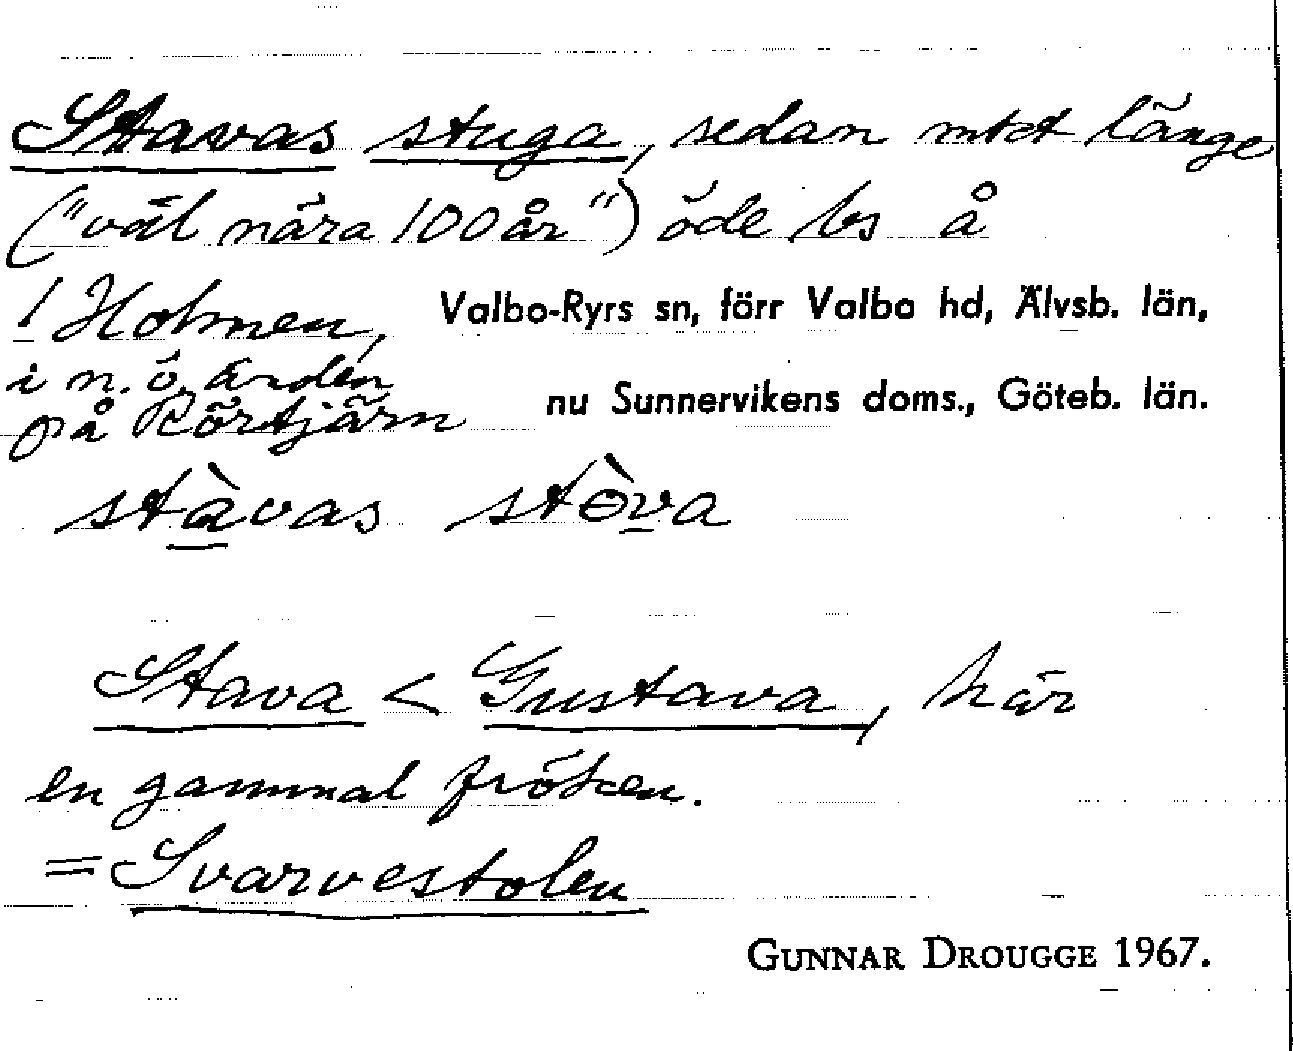 Stavas stuga, sedan mkt länge
("väl nära 100 år") öde ls å
1 Holmen, Valbo-Ryrs sn, förr Valbo hd, Älvsb. län,
i n.ö. änden
på Rörtjärn nu Sunnervikens doms., Göteb. län.
stàvas stòva
Stava < Gustava, här
en gammal fröken.
= Svarvestolen
GUNNAR DROUGGE 1967.